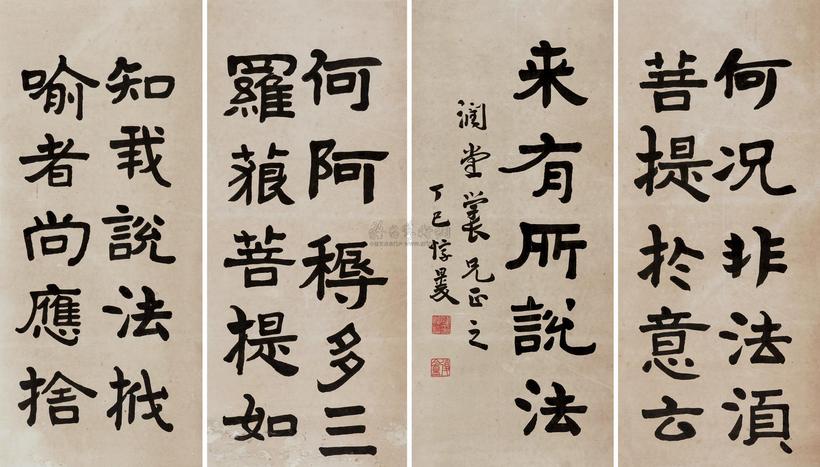 何況非法須
菩提於意云
来有所說法
潤堂兄正之
丁巳惇㬊
何阿耨多三
羅藐菩提如
知我說法栰
喻者尚應捨